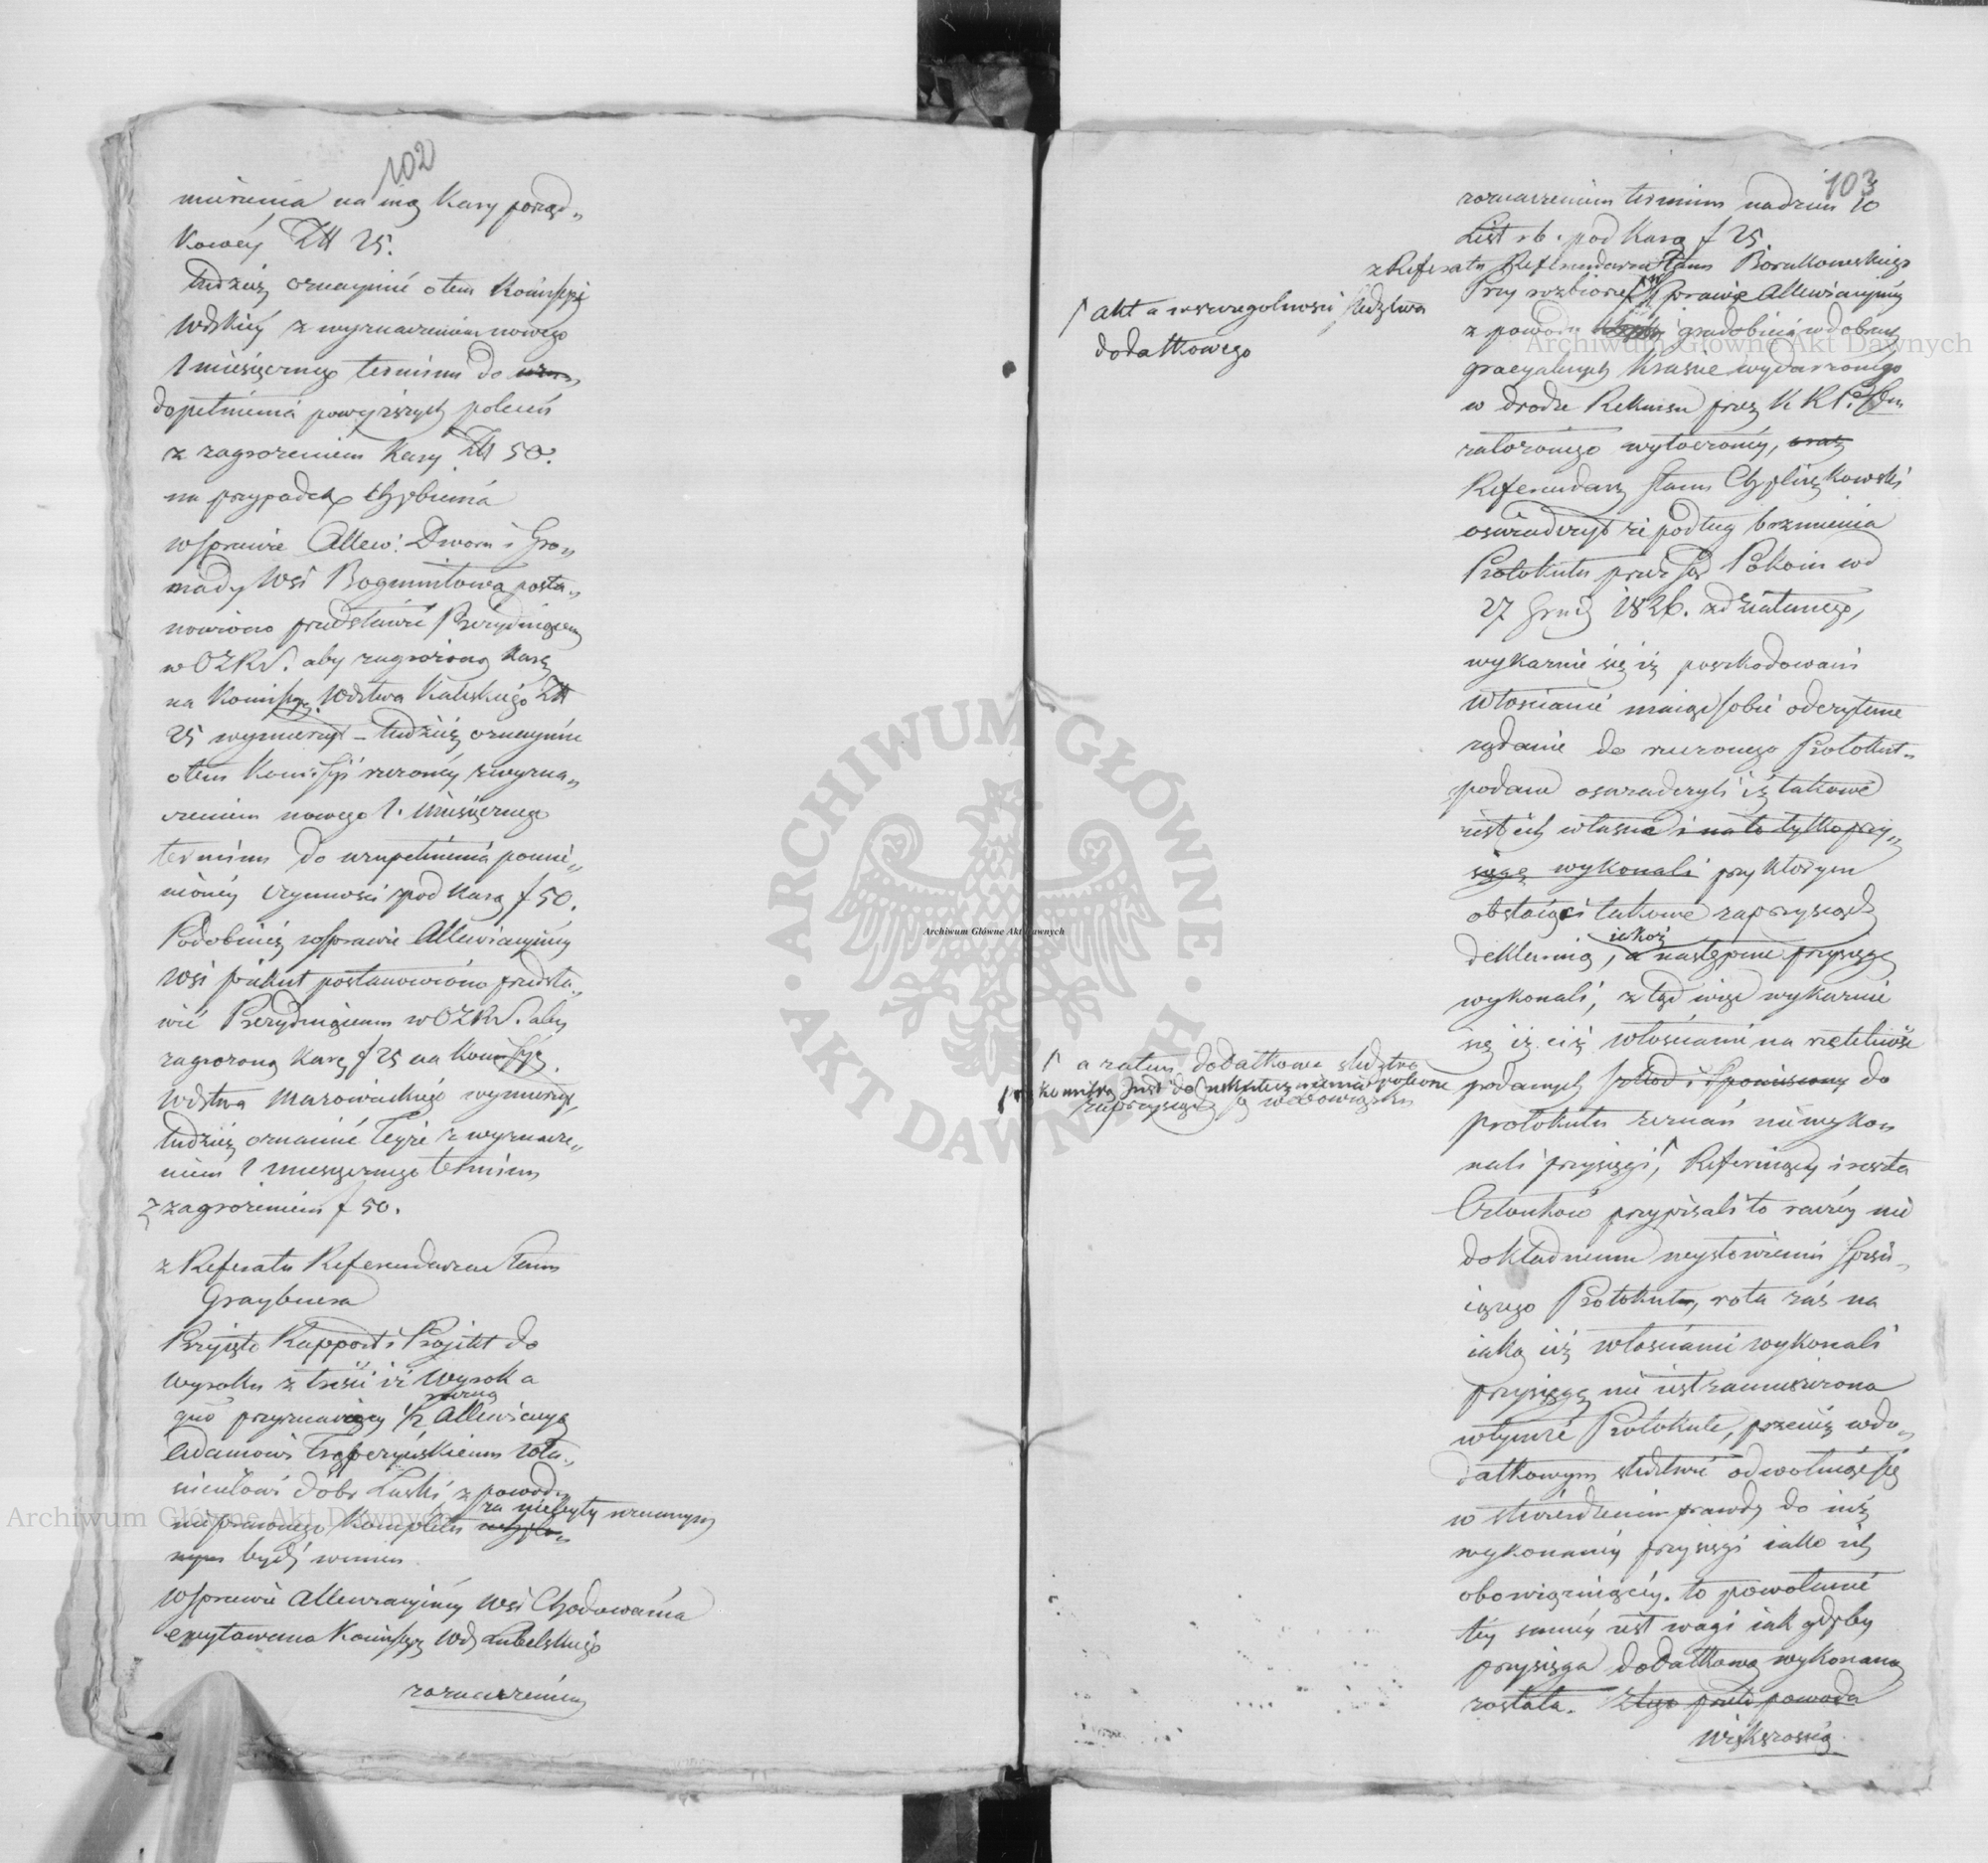 102
mierzenia na nią Kary porząd„
kowéy Złt 25.
tudzież oznaymić o tem Kommissyi
Wdzkiéy z wyznaczeniem nowego
1 miesięcznego terminu do
dopełnienia powyższych poleceń
z zagrożeniem Kary Złt 50.
na przypadek chybienia
W sprawie Allew: Dworu i Gro„
mady Wsi Bogumiłowa posta„
nowiono przedstawić Prezyduiącemu
w OZKW. aby zagrożoną karę
na Kommissyą Wdztwa Kaliskiego Złt
25 wymierzył – tudzież oznaymić
o tem Kommissyi rzeczonéy z wyzna„
czeniem nowego 1. miesięcznego
terminu do uzupełnienia pomie„
nionéy czynności pod karą f 50.
Podobnież w sprawie Allewiacyinéy
Wsi postanowiono przedsta„
wić Prezyduiącemu w OZKW. aby
zagrożoną karę f 25 na Kommissyę
Wdztwa Mazowieckiego wymierzył,
tudzież oznaymić Teyże z wyznacze„
niem 1 miesięcznego terminu
z zagrożeniem f 50.
z Referatu Referendarza Stanu
Graybnera
Przyięto Rapport i Projekt do
wyroku z treści iż Wyrok a
quo przyznaiący 1/2 roczną Allewiacyą
Adamowi
dóbr z powodu
nieprawnego Kompletu za niebyły uznanym
nym bydź winien
W sprawie Allewiacyinéy Wsi Chodowania
excytowana Kommissya Wdz Lubelskiego
zoznaczeniem
103
zoznaczeniem terminu na dzień 10
List r b. pod karą f 25
z Referatu Referendarza Stanu Borakowskiego
Przy rozbiorze w Sprawie Allewiacyinéy
⌈ akt a w szczególności śledztwa
dodatkowego
z powodu gradobicia w dobrach
gracyalnych Krasne wydarzonego
w drodze Rekursu przez K R P.
ratoryinego wytoczonéy, oraz
Referendarz Stanu
oświadczył że podług brzmienia
Protokułu przez Sąd Pokoiu w d
27 Grud 1826. zdziałanego,
wykazuie się iż poszkodowani
Włościanie maiąc sobie odczytane
żądanie do rzeczonego Protokuł„
podane oświadczyli iż takowe
iest ich własne i na to tylko przy„
sięgę wykonali przy którym
obstaiąc i takowe zaprzysiądz
deklaruią, iakoż a następnie przysięgę
wykonali, z tąd więc wykazuie
się iż ciż włościanie na rzetelność
podanych szkod i do
protokułu zeznań nie wyko„
nali przysięgi, ⌈ Referuiący i reszta
⌈ a zatem dodatkowe śledztwo
zaprzysiądz
Członków przypisali to raczéy nie
dokładnemu wysłowieniu spisu„
iącego Protokuł, rota zaś na
iaką iż włościanie wykonali
przysięgę nie iest zamieszczona
w tymże Protokule, przecież w do„
datkowym śledztwie odwołuiąc się
w stwierdzeniu prawdy do iuż
wykonanéy przysięgi iako ich
obowiązuiącéy. to powołanie
téy saméy iest wagi iak gdyby
przysięga dodatkowa wykonaną
została. Z tego przeto powodu
Większością
Archiwum Główne Akt Dawnych
Archiwum Główne Akt Dawnych
Archiwum Główne Akt Dawnych
ARCHIWUM GŁÓWNE AKT DAWNYCH